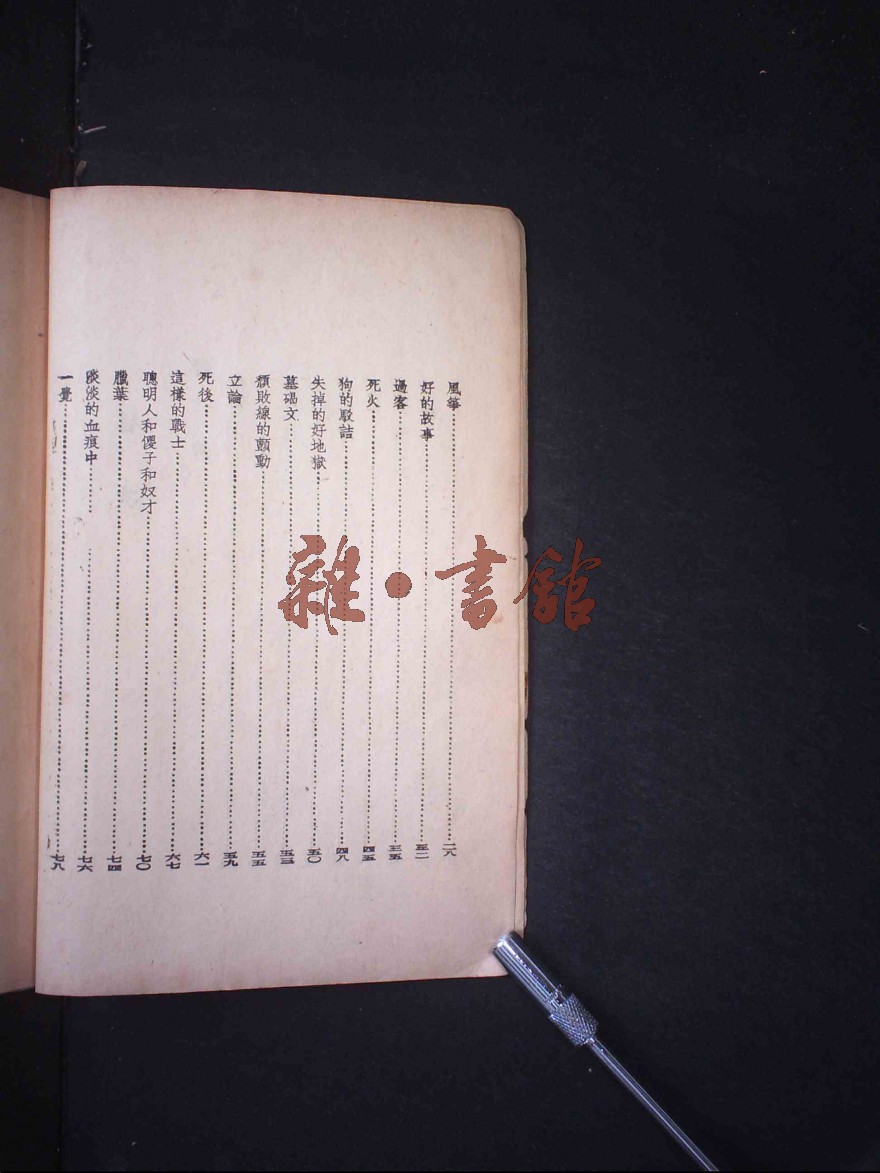 風箏……二八
好的故事……三二
過客……三五
死火……四五
狗的駁詰……四八
失掉的好地獄……五〇
墓碣文……五三
頹敗線的顫動……五五
立論……五九
死後……六一
這樣的戰士……六七
聰明人和傻子和奴才……七〇
臘葉……七四
淡淡的血痕中……七六
一覺……七八
雜·書館